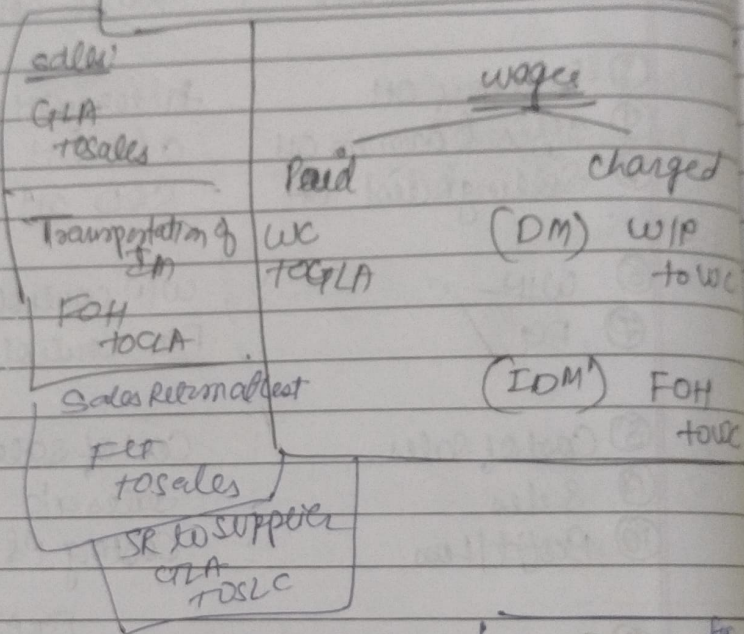 Sales
GLA
to Sales
Transportation of
FOH
to GLA
Sales Return at Cost
to Sales
SR to supplier
GLA
to SLC
wages
Paid
charged
WC
to GLA
(DM) WIP
to WC
(IDM) FOH
to WC